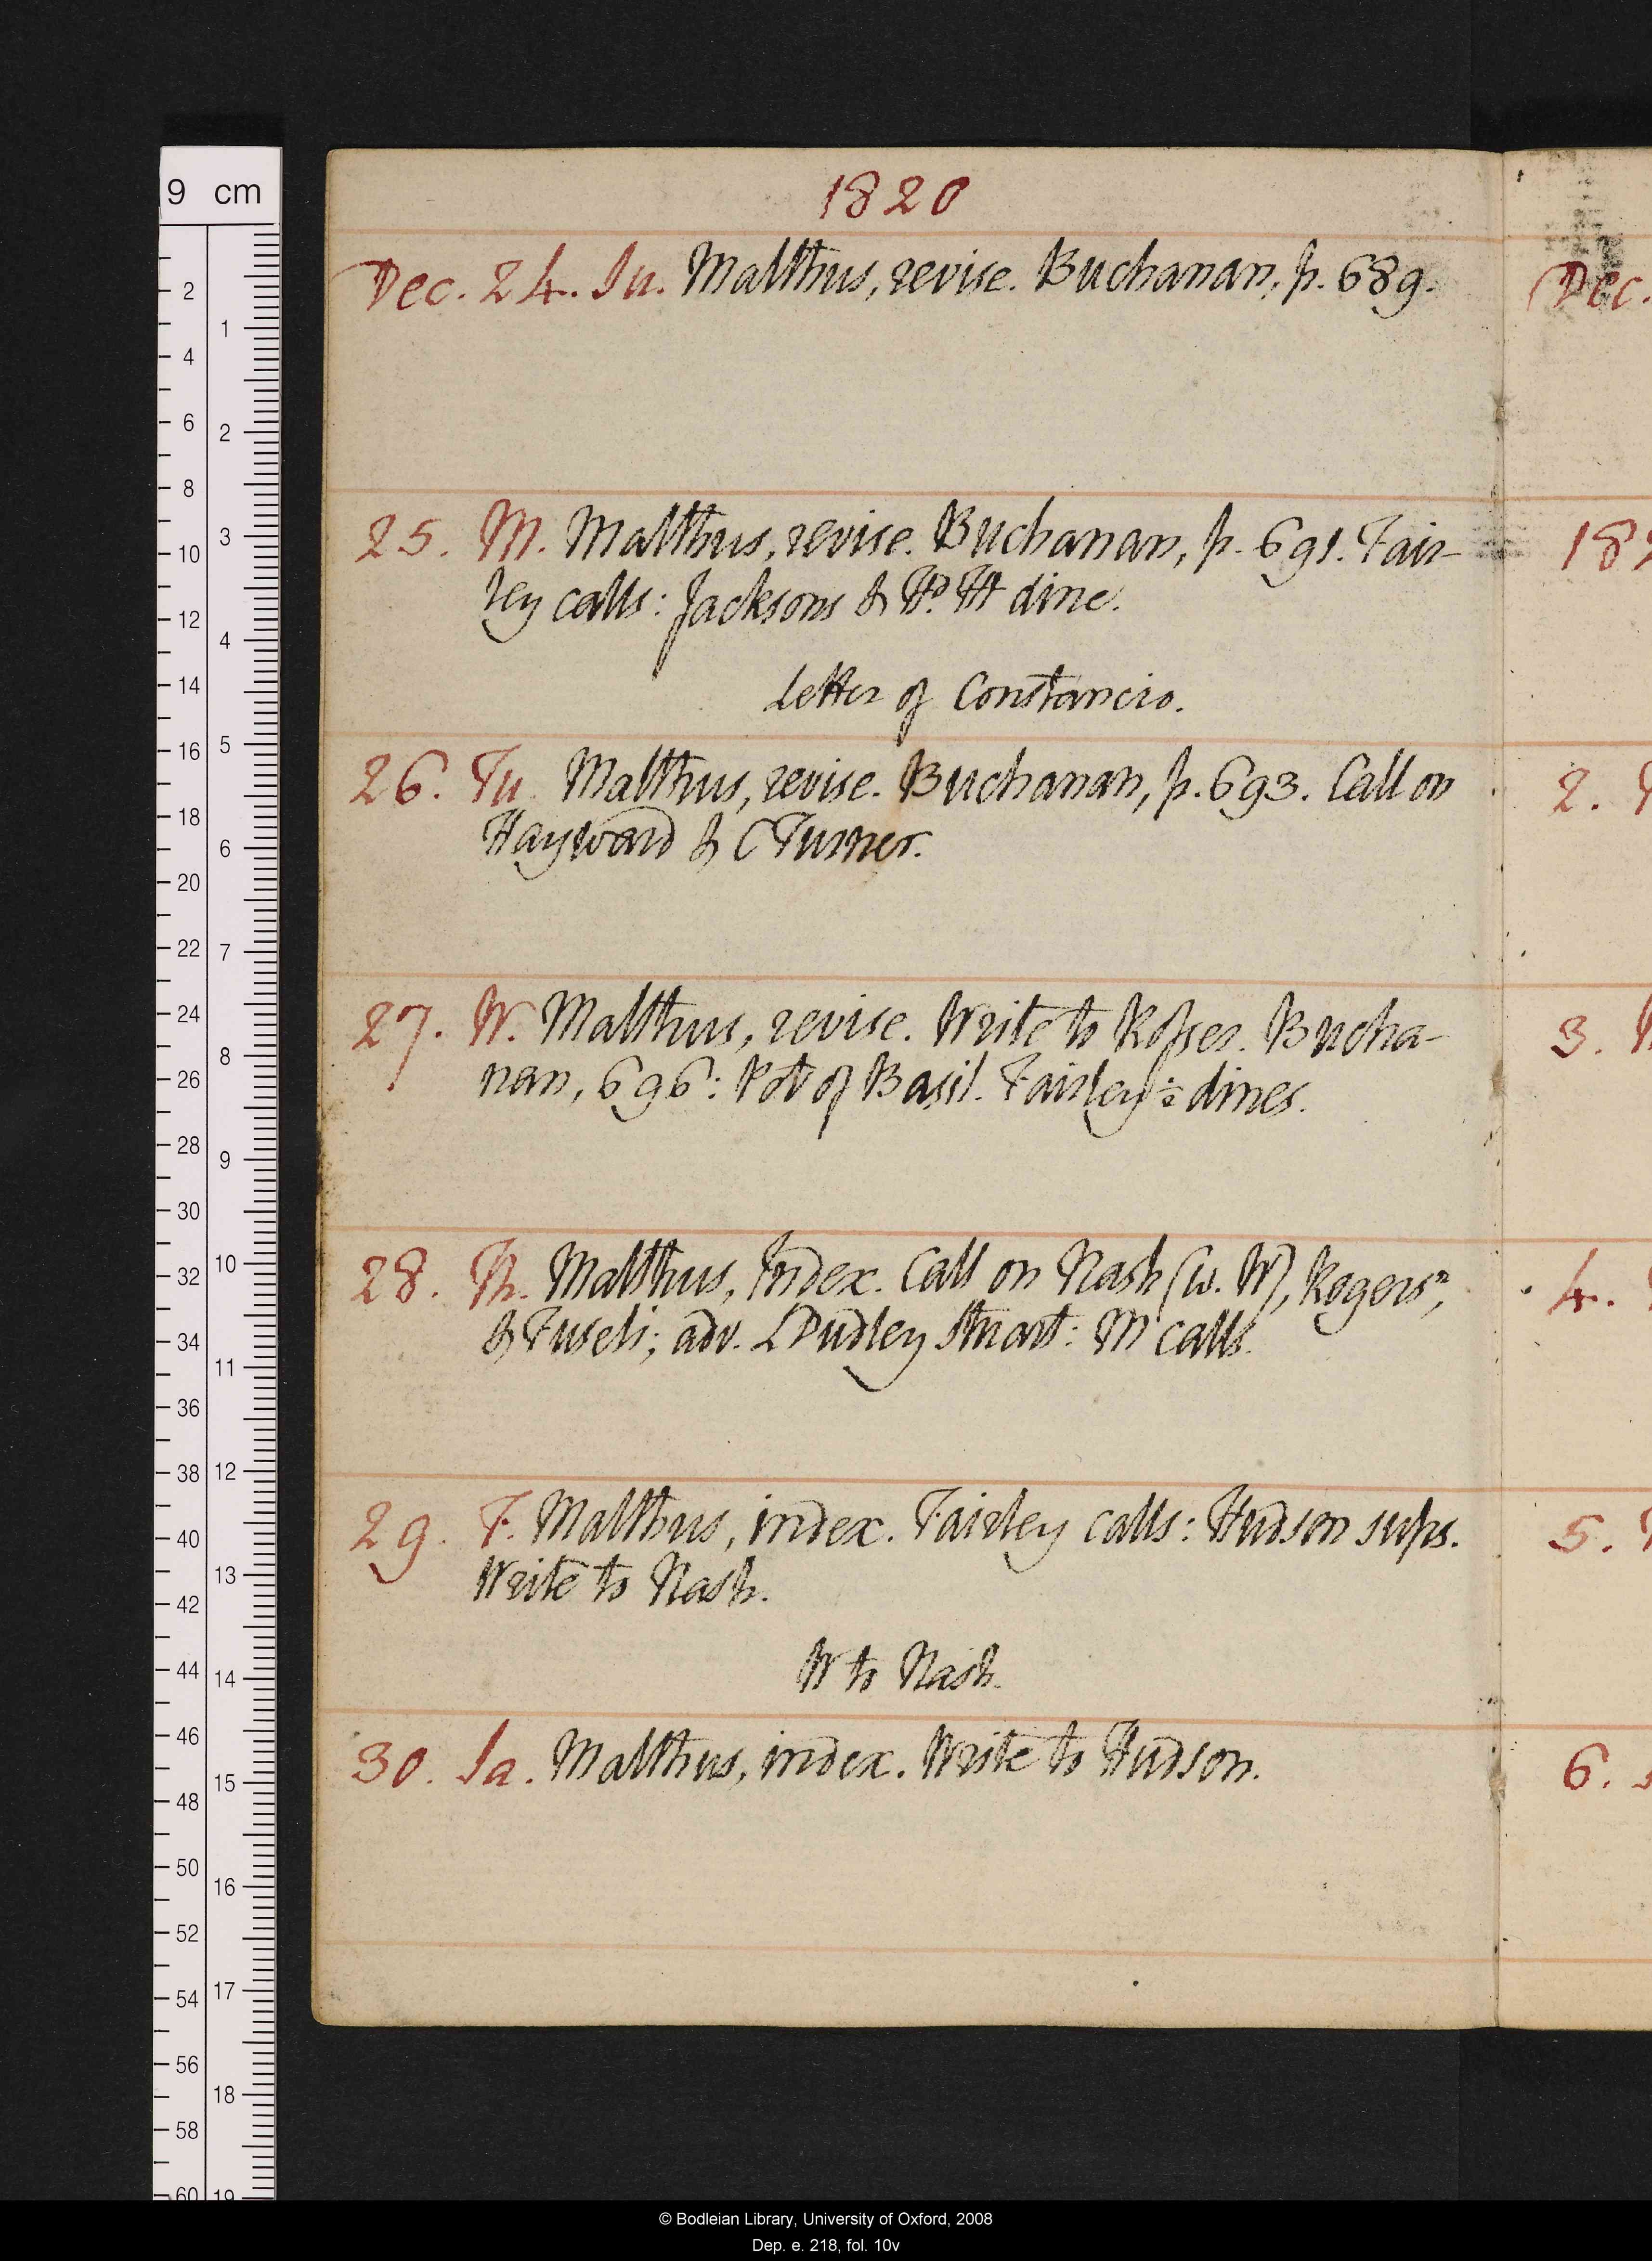 1820
Dec. 24. Su. Malthus, revise. Buchanan, p. 689.
25. M. Malthus, revise. Buchanan, p. 691. Fair-
ley calls: Jacksons & H.D. H dine.
Letter of Constancio.
26. Tu. Malthus, revise. Buchanan, p. 693. Call on
Hayward & C Turner.
27. W. Malthus, revise. Write to Rosser. Bucha-
nan, 696: Pot of Basil. Fairley dines.
28. Th. Malthus, Index. Call on Nash (W. W), Rogers n,
& Fuseli; adv. L Dudley Stuart: M calls.
29. F. Malthus, index. Fairley calls: Hudson sups.
Write to Nash.
W to Nash.
30. Sa. Malthus, index. Write to Hudson.
Dec.
2.
3.
4.
5.
6.
9 cm
© Bodleian Library, University of Oxford, 2008
Dep. e. 218, fol. 10v